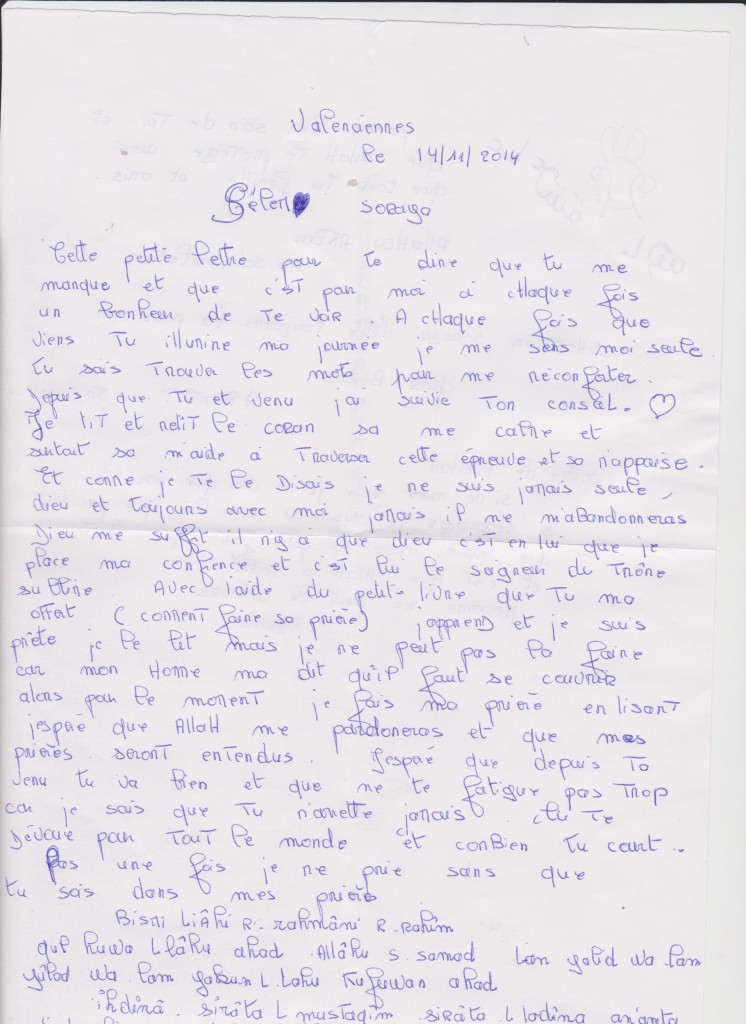 Valenciennes
le 14/11/2014
Sélem soraya
Cette petite lettre pour te dire que tu me
manque et que c'est par moi a chaque fois
un bonheur de te voir. A chaque fois que
viens Tu illumine ma journée je me sans moi seule
tu sais Trouver les mots pour me réconforter.
Depuis que Tu et venu j'ai suivie Ton consél.
Je lit et relit le coran sa me calme et
surtout sa m'aide a Traverser cette épreuve et sa m'appaise.
Et comme je te le Disais je ne suis jamais seule,
dieu et toujours avec moi jamais il ne m'abandonneras
Dieu me suffit il n'y a que dieu c'est en lui que je
place ma confience et c'est lui le seigneur du Trône
sublime. Avec l'aide du petit livre que Tu ma
offert (comment faire sa prière) j'apprend et je suis
prète je le lit mais je ne peut pas la faire
car mon Homme ma dit qu'il faut se couvrir
alors par le moment je fais ma prière en lisant
j'espère que Allah me pardoneras et que mes
prières seront entendus. J'espère que depuis Ta
venu tu va bien et que ne te fatigue pas Trop
car je sais que Tu n'arrette jamais. Tu Te
Dévoue pour Tout le monde et comBien Tu court..
Pas une fois je ne prie sans que
tu sois dans mes prières
Bismi Liâhi R. rahmâni R. rahîm
qul huwa Llâhu ahad Allâhu s. samad Lam yalid wa lam
yûlad wa lam yakun L. lahu Kufuwan ahad
ihdinâ. sirâta L mustaqim sirâta L ladina an'amta